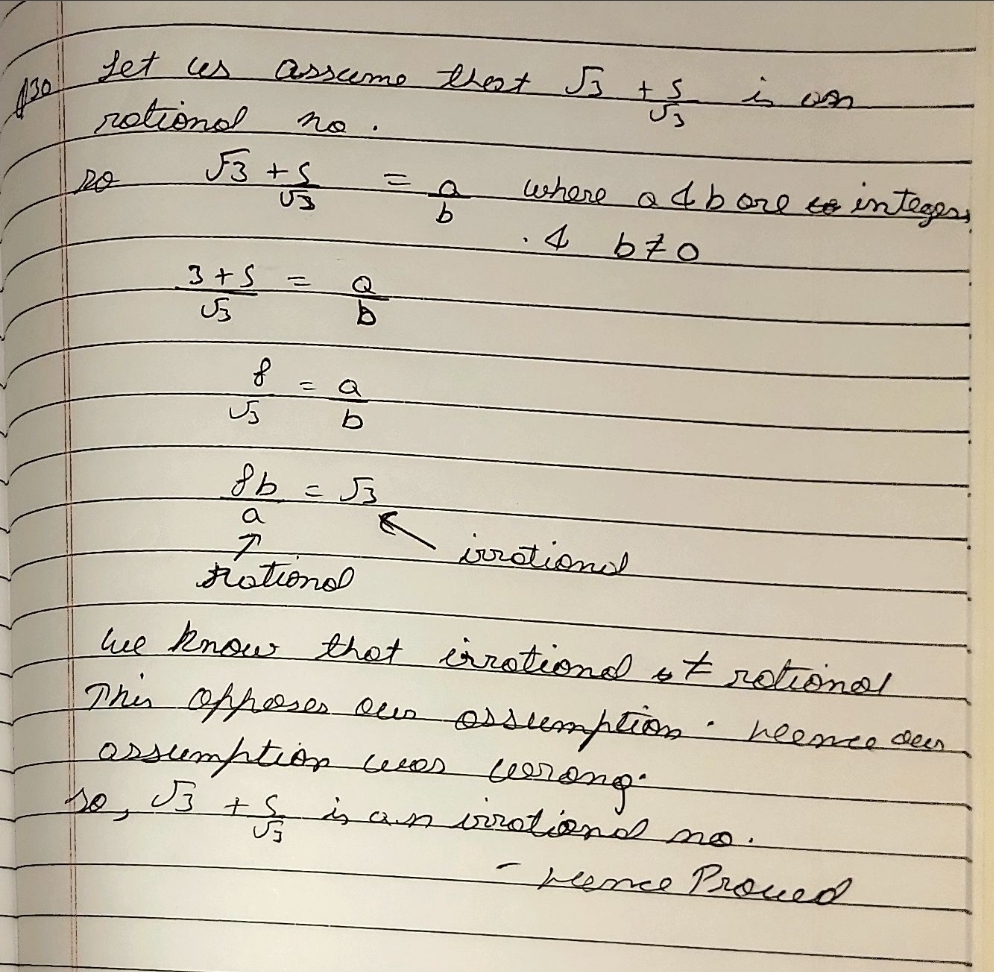 Q30 Let us assume that √3 + 5/√3 is an
rational no.
so √3 + 5/√3 = a/b where a & b are integers
& b ≠ 0
3+5/√3 = a/b
8/√3 = a/b
8b/a = √3
↑ rational ↖ irrational
We know that irrational ≠ rational
This opposes our assumption. Hence our
assumption was wrong.
so, √3 + 5/√3 is an irrational no.
- Hence Proved